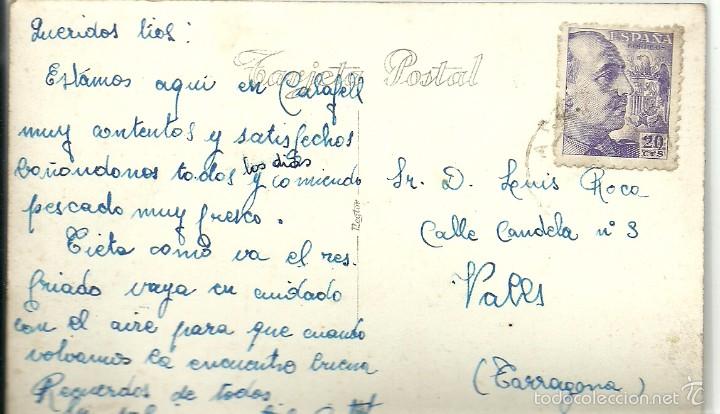 Queridos tios:
Estamos aqui en Calafell
muy contentos y satisfechos
bañandonos todos los dias y comiendo
pescado muy fresco.
Tieta como va el res-
friado vaya en cuidado
con el aire para que cuando
volvamos la encuentro buena
Recuerdos de todos.
Tarjeta Postal
ESPAÑA
CORREOS
20
CTS
Sr. D. Luis Roca
Calle Candela nº 3
Valls
(Tarragona)
todocoleccion.net